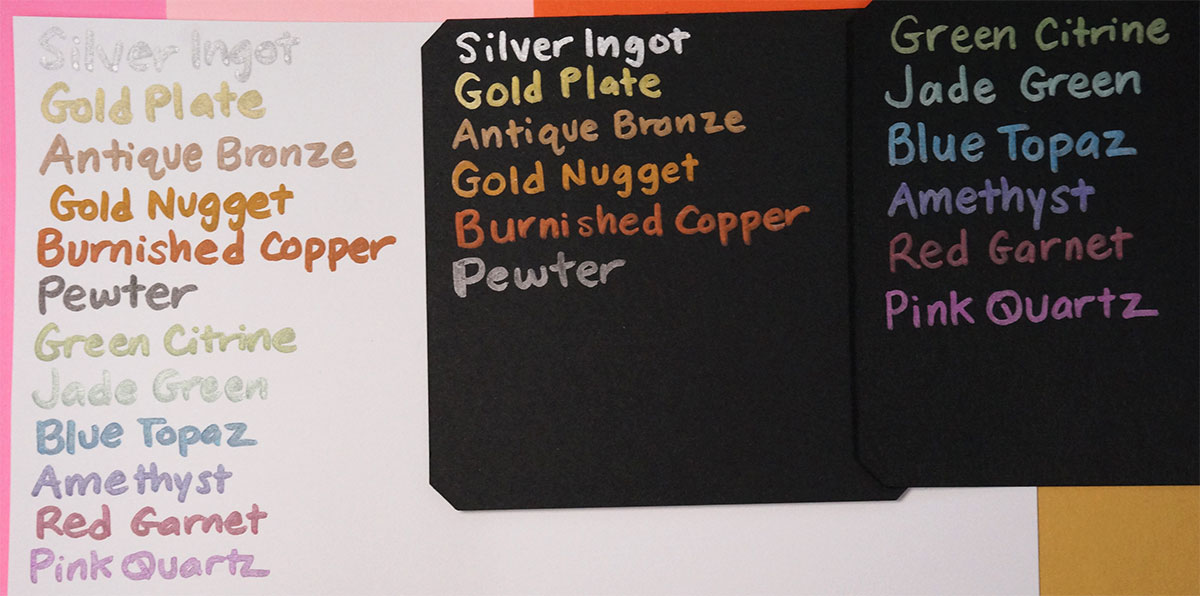 Silver Ingot
Gold Plate
Antique Bronze
Gold Nugget
Burnished Copper
Pewter
Green Citrine
Jade Green
Blue Topaz
Amethyst
Red Garnet
Pink Quartz
Silver Ingot
Gold Plate
Antique Bronze
Gold Nugget
Burnished Copper
Pewter
Green Citrine
Jade Green
Blue Topaz
Amethyst
Red Garnet
Pink Quartz